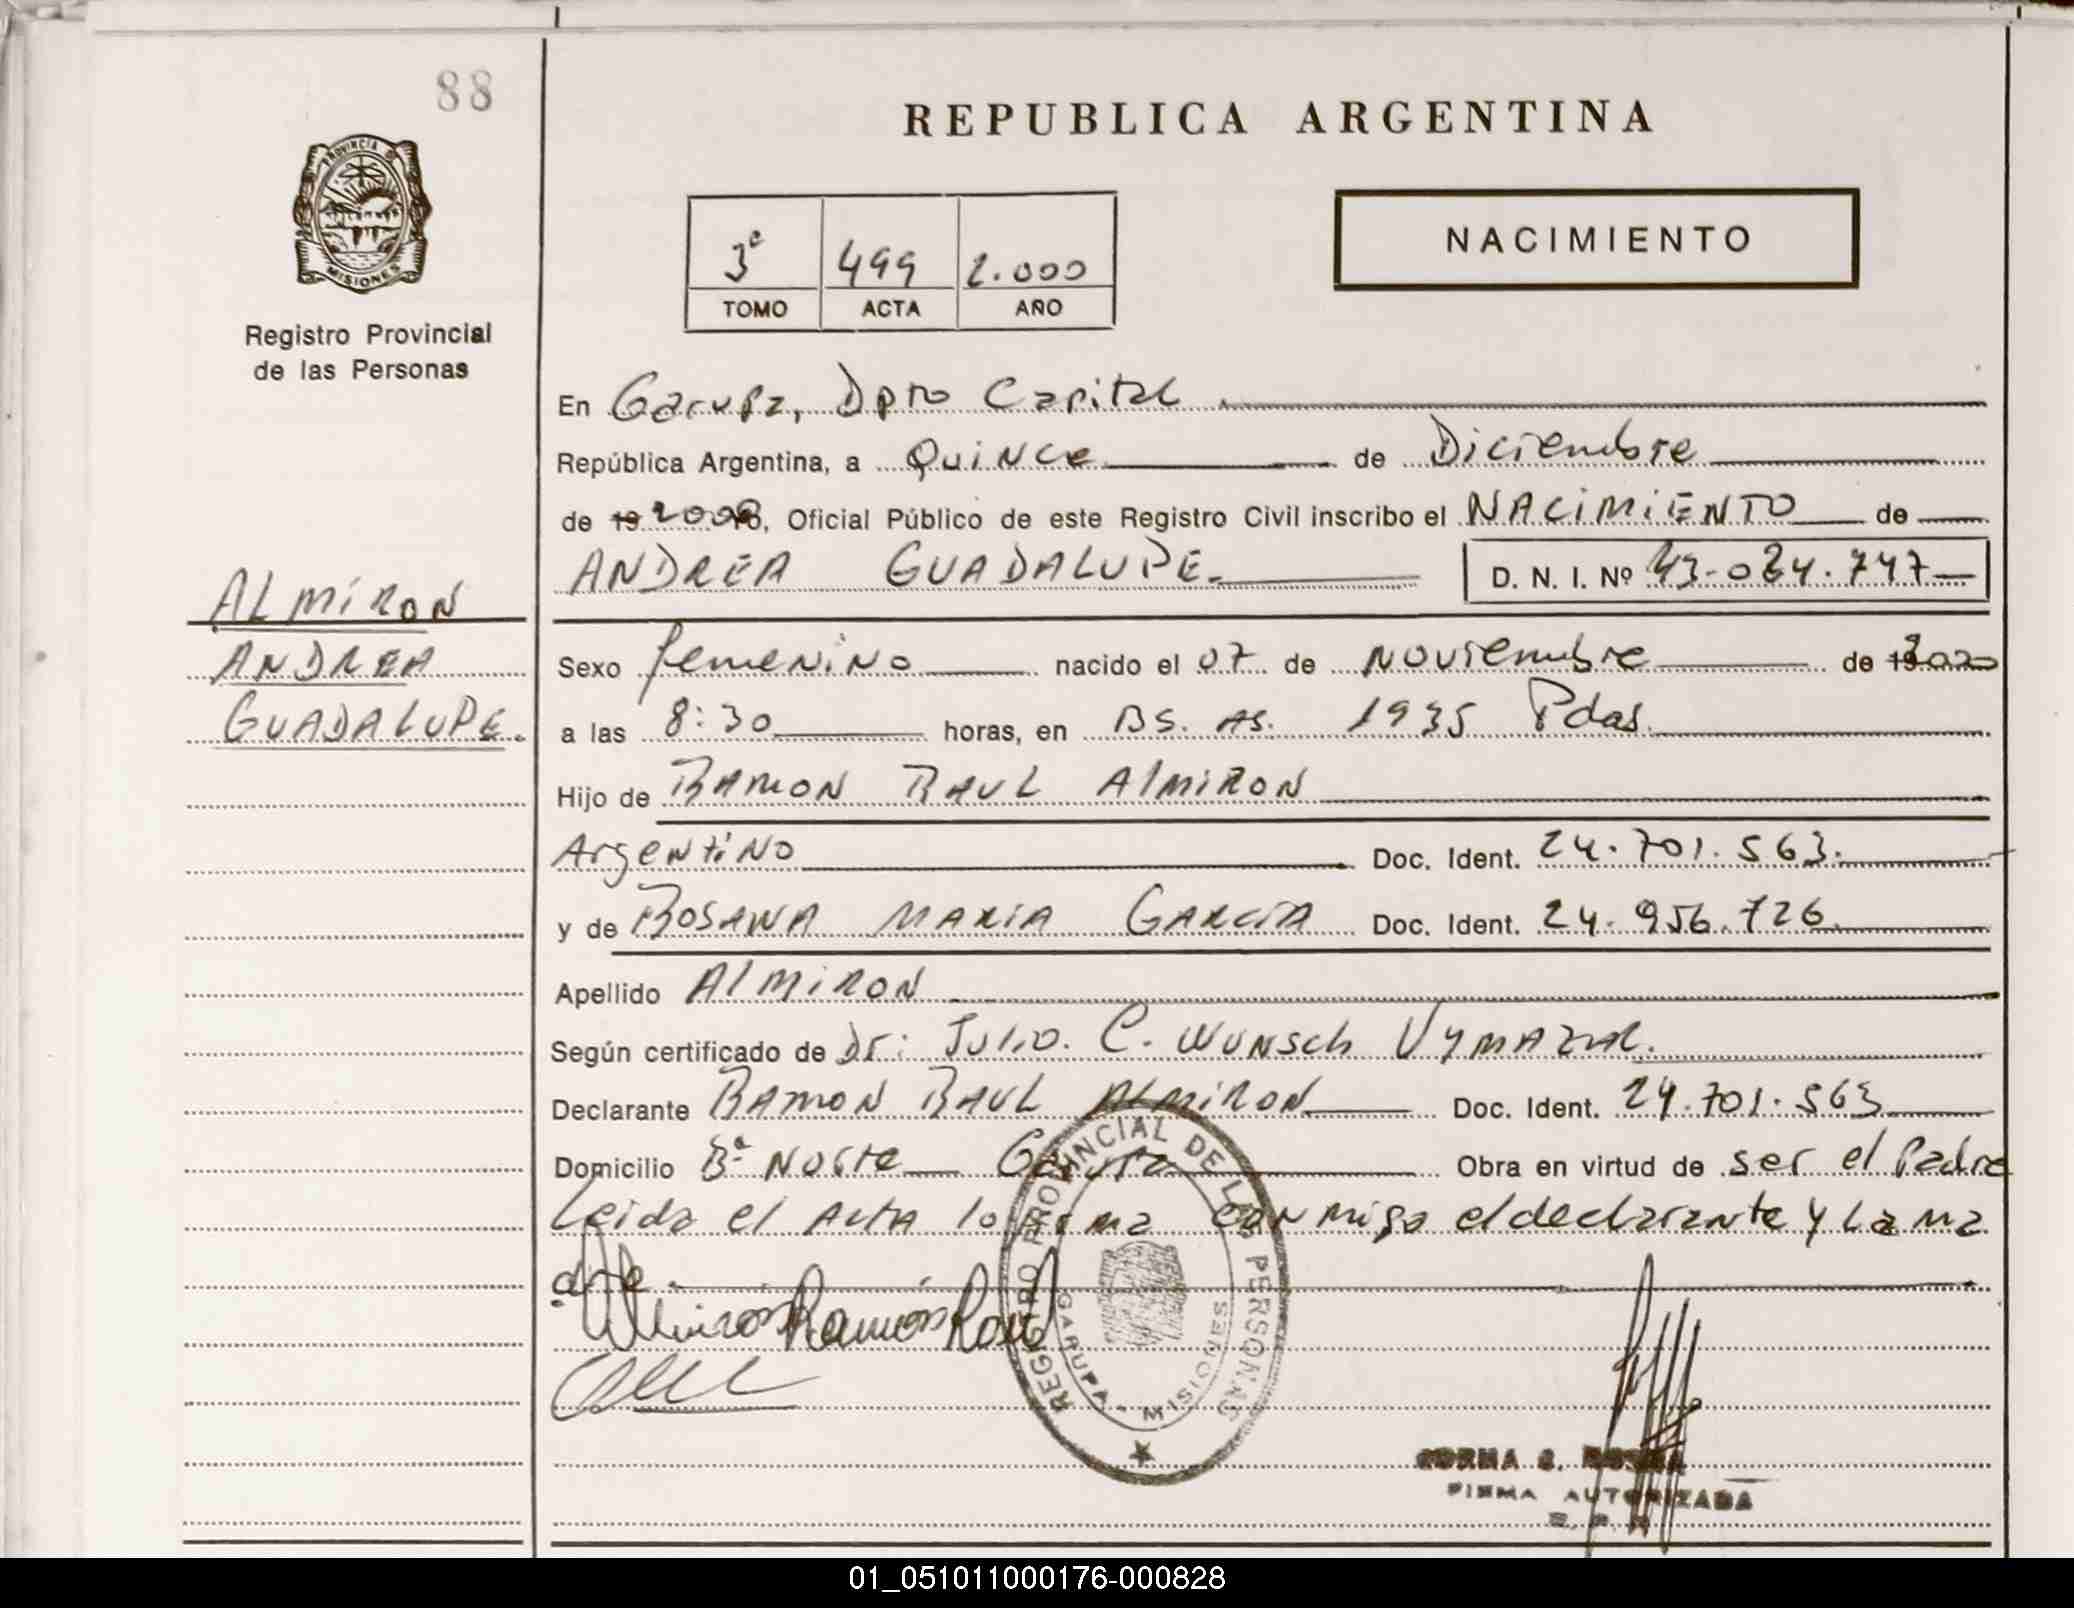 88
REPUBLICA ARGENTINA
PROVINCIA DE
MISIONES
Registro Provincial
de las Personas
3e 499 2.000
TOMO ACTA AÑO
NACIMIENTO
En Garupa, Dpto Capital
República Argentina, a Quince de Diciembre
de 19 2000, Oficial Público de este Registro Civil inscribo el NACIMIENTO de
ANDREA GUADALUPE. D. N. I. Nº 43.084.747
ALMIRON
ANDREA
GUADALUPE.
Sexo femenino nacido el 07 de noviembre de 19 2000
a las 8:30 horas, en BS. AS. 1935 Pdas.
Hijo de RAMON RAUL ALMIRON
Argentino Doc. Ident. 24.701.563.
y de ROSANA MARIA GARCIA Doc. Ident. 24.956.726.
Apellido ALMIRON
Según certificado de Dr: Julio. C. WUNSch VYMAZAL.
Declarante RAMON RAUL ALMIRON Doc. Ident. 24.701.563
Domicilio Bº Norte Garupa Obra en virtud de ser el Padre
Leida el ActA la firma conmigo el declarante y la ma
dre.
Almirón Ramón Raul
REGISTRO PROVINCIAL DE LAS PERSONAS
GARUPA - MISIONES
FIRMA AUTORIZADA
01_051011000176-000828